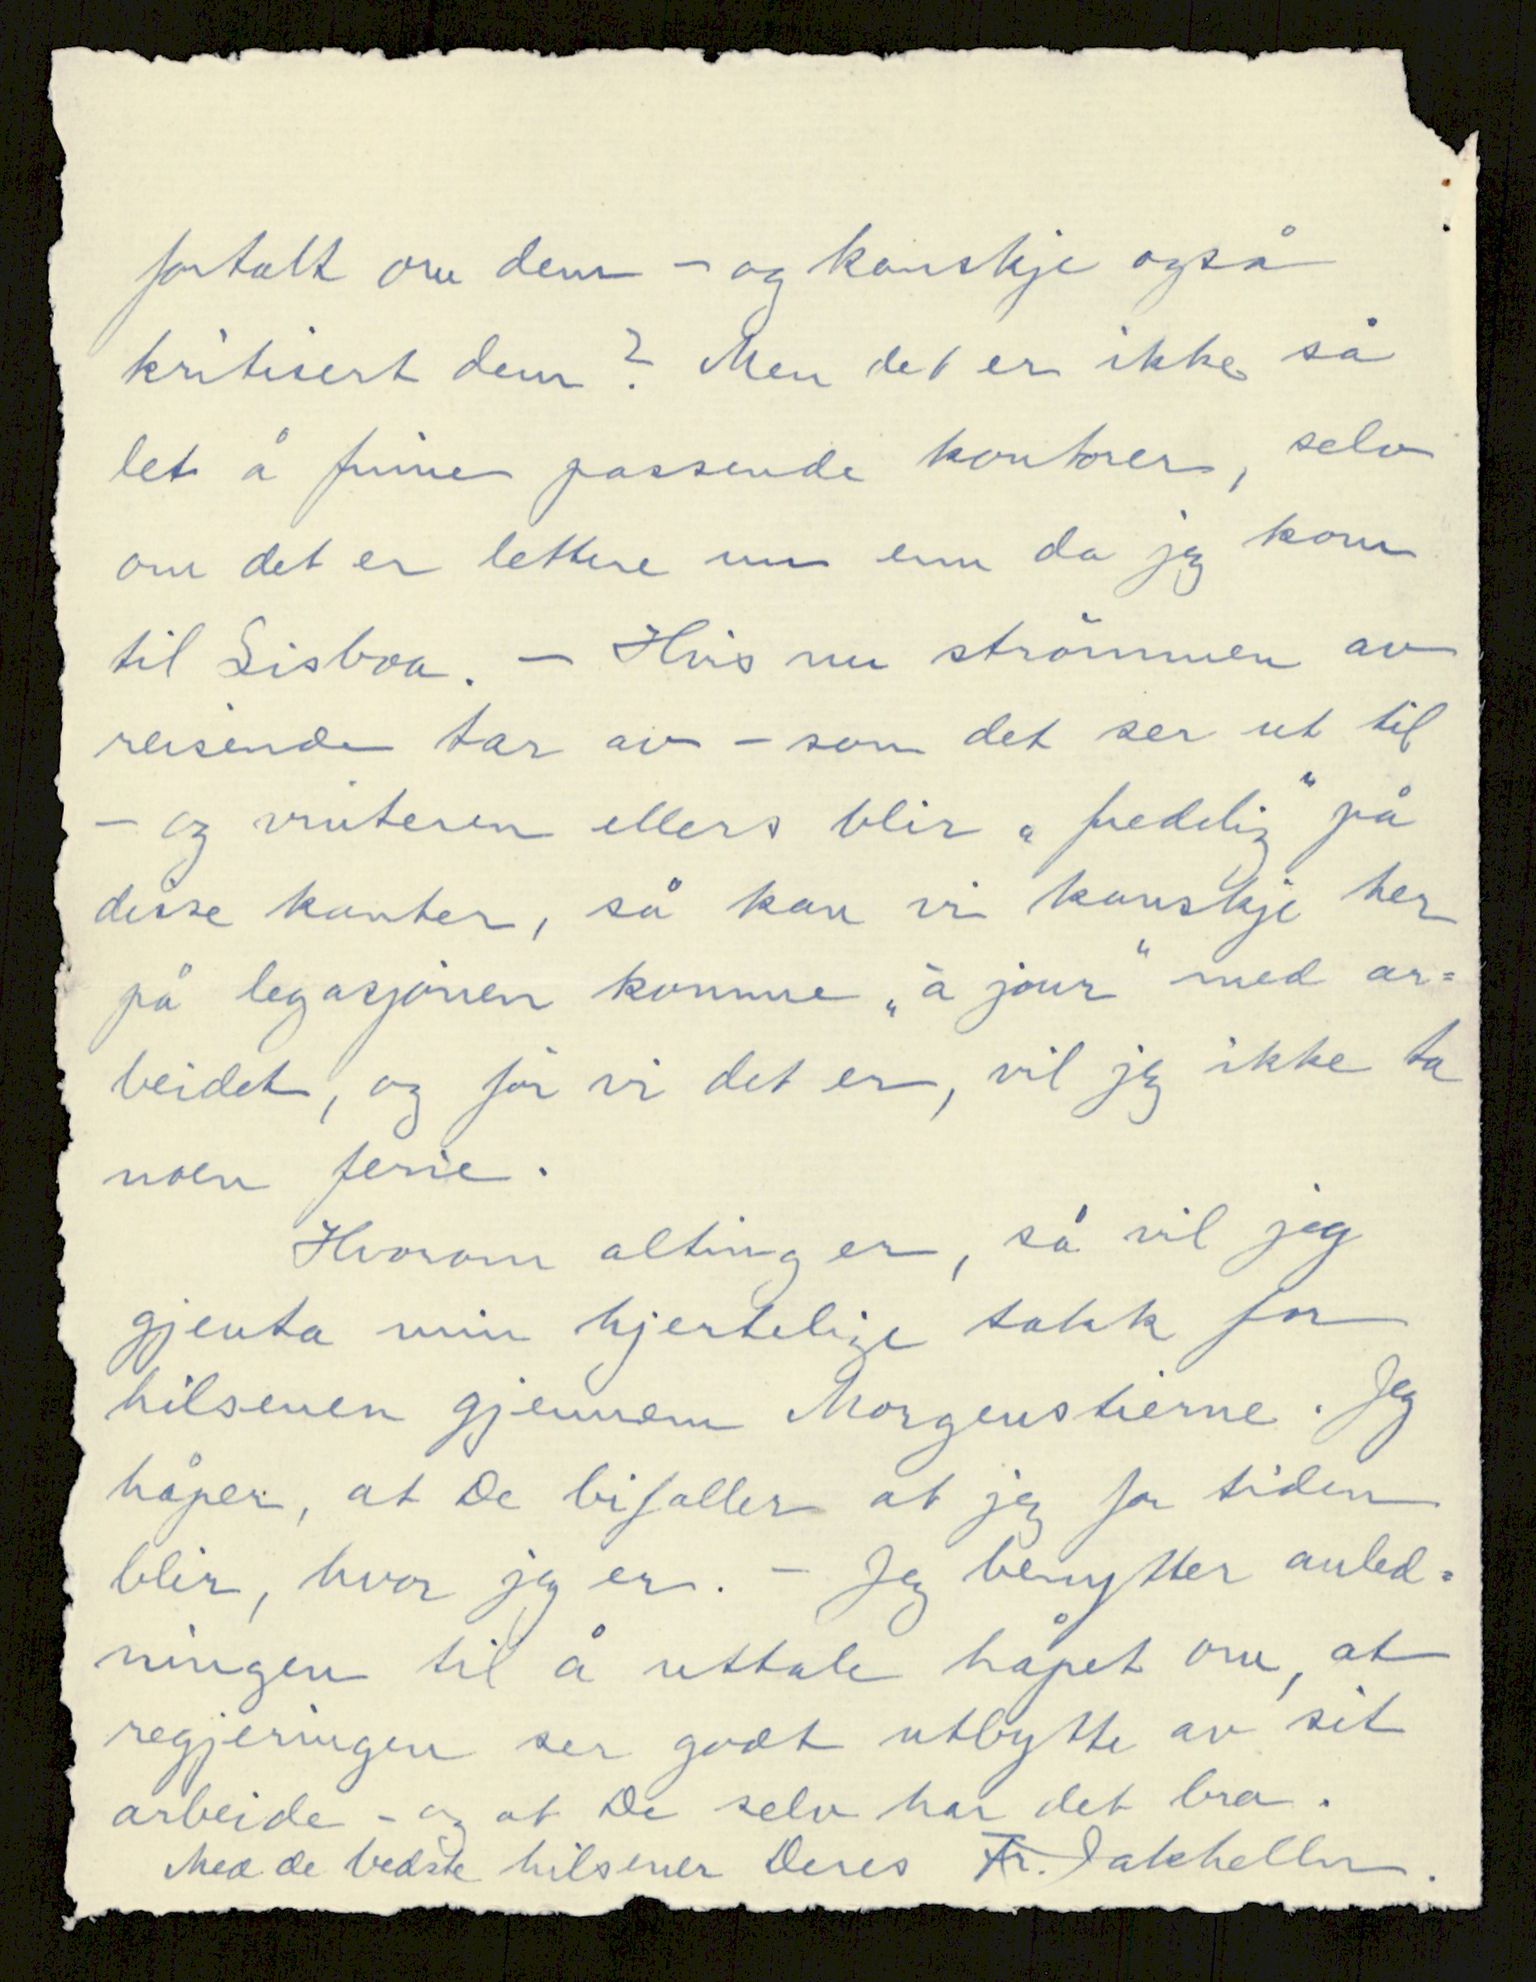 fortalt om dem – og kanskje også
kritisert dem? Men det er ikke så
let å finne passende kontorer, selv
om det er lettere nu enn da jeg kom
til Lisboa. – Hvis nu strömmen av
reisende tar av – som det ser ut til
– og vinteren ellers blir „fredelig“ på
disse kanter, så kan vi kanskje her
på legasjonen komme „à jour“ med ar=
beidet, ogför vi det er, vil jeg ikke ta
noen ferie.
Hvorom alting er, så vil jeg
gjenta min hjertelige takk for
hilsenen gjennem Morgenstierne. Jeg
håper, at De bifaller at jeg for tiden
blir, hvor jeg er. – Jeg benytter anled=
ningen til å uttale håpet om, at
regjeringen ser godt utbytte av sit
arbeide – og at De selv har det bra.
Med de bedste hilsener Deres Fr. Jakhelln.